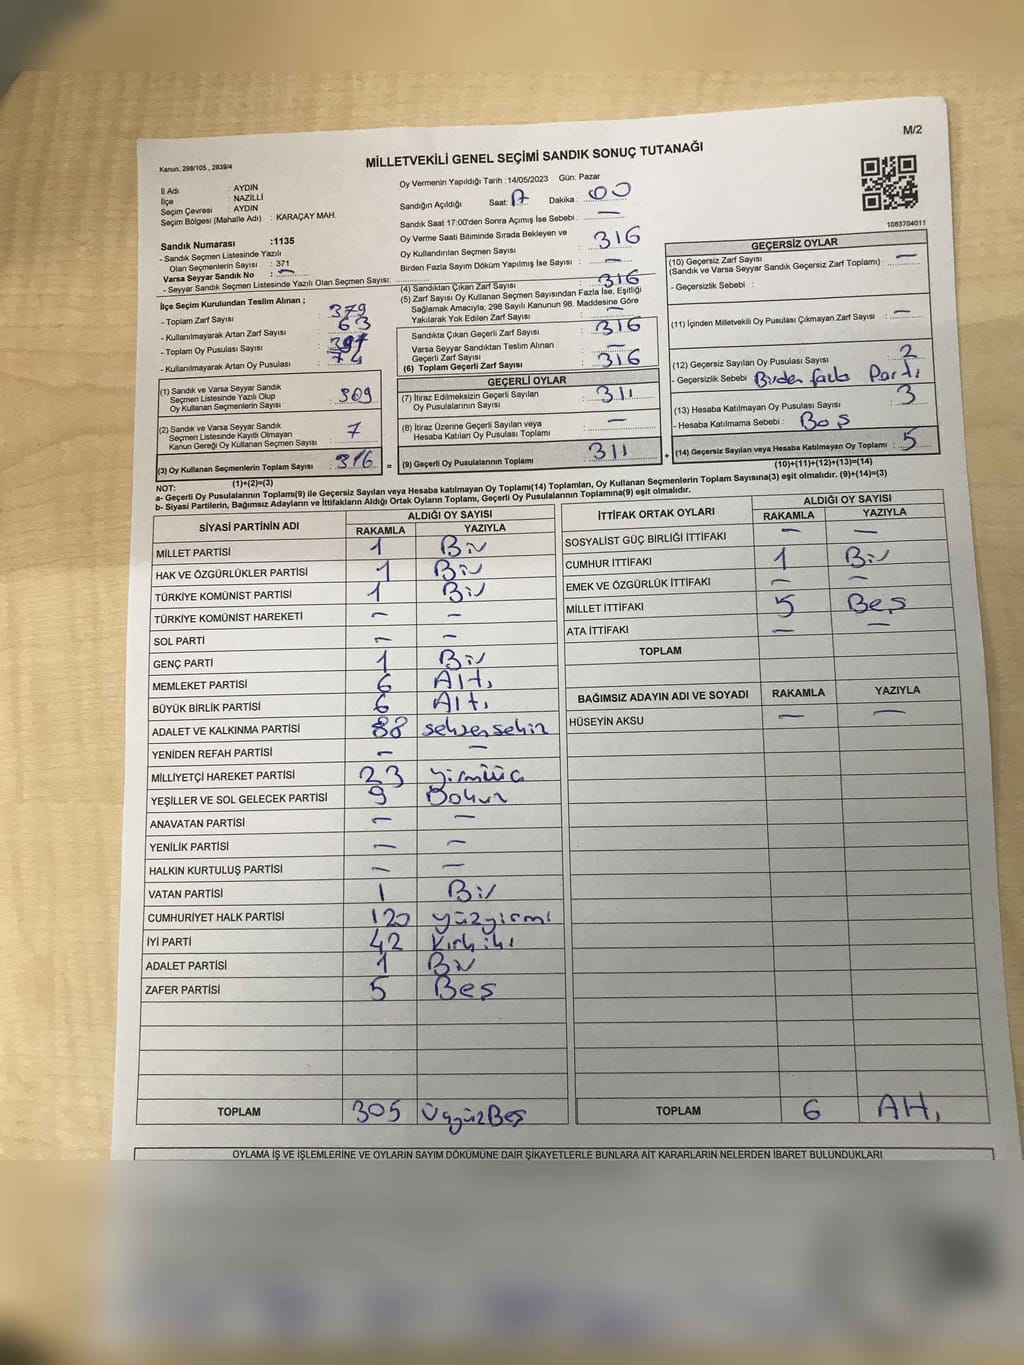 M/2
Kanun, 298/105 , 2839/4
MİLLETVEKİLİ GENEL SEÇİMİ SANDIK SONUÇ TUTANAĞI
İl Adı : AYDIN
İlçe : NAZİLLİ
Seçim Çevresi : AYDIN
Seçim Bölgesi (Mahalle Adı) : KARAÇAY MAH.
Oy Vermenin Yapıldığı Tarih : 14/05/2023 Gün: Pazar
Sandığın Açıldığı Saat: 17 Dakika : 00
Sandık Saat 17:00'den Sonra Açımış İse Sebebi : —
Oy Verme Saati Bitiminde Sırada Bekleyen ve
Oy Kullandırılan Seçmen Sayısı : 316
Birden Fazla Sayım Döküm Yapılmış İse Sayısı : —
1083704011
Sandık Numarası :1135
- Sandık Seçmen Listesinde Yazılı
Olan Seçmenlerin Sayısı : 371
Varsa Seyyar Sandık No : —
- Seyyar Sandık Seçmen Listesinde Yazılı Olan Seçmen Sayısı:
İlçe Seçim Kurulundan Teslim Alınan ;
- Toplam Zarf Sayısı : 379
- Kullanılmayarak Artan Zarf Sayısı : 63
- Toplam Oy Pusulası Sayısı :
- Kullanılmayarak Artan Oy Pusulası : 74
(1) Sandık ve Varsa Seyyar Sandık
Seçmen Listesinde Yazılı Olup
Oy Kullanan Seçmenlerin Sayısı : 309
(2) Sandık ve Varsa Seyyar Sandık
Seçmen Listesinde Kayıtlı Olmayan
Kanun Gereği Oy Kullanan Seçmen Sayısı : 7
(3) Oy Kullanan Seçmenlerin Toplam Sayısı : 316 =
(1)+(2)=(3)
(4) Sandıktan Çıkan Zarf Sayısı : 316
(5) Zarf Sayısı Oy Kullanan Seçmen Sayısından Fazla İse, Eşitliği
Sağlamak Amacıyla, 298 Sayılı Kanunun 98. Maddesine Göre
Yakılarak Yok Edilen Zarf Sayısı : —
Sandıkta Çıkan Geçerli Zarf Sayısı : 316
Varsa Seyyar Sandıktan Teslim Alınan
Geçerli Zarf Sayısı : —
(6) Toplam Geçerli Zarf Sayısı : 316
GEÇERLİ OYLAR
(7) İtiraz Edilmeksizin Geçerli Sayılan
Oy Pusulalarının Sayısı : 311
(8) İtiraz Üzerine Geçerli Sayılan veya
Hesaba Katılan Oy Pusulası Toplamı : —
(9) Geçerli Oy Pusulalarının Toplamı : 311 +
GEÇERSİZ OYLAR
(10) Geçersiz Zarf Sayısı
(Sandık ve Varsa Seyyar Sandık Geçersiz Zarf Toplamı) : —
- Geçersizlik Sebebi :
(11) İçinden Milletvekili Oy Pusulası Çıkmayan Zarf Sayısı : —
(12) Geçersiz Sayılan Oy Pusulası Sayısı : 2
- Geçersizlik Sebebi : Birden fazla Parti
(13) Hesaba Katılmayan Oy Pusulası Sayısı : 3
- Hesaba Katılmama Sebebi : Boş
(14) Geçersiz Sayılan veya Hesaba Katılmayan Oy Toplamı : 5
(10)+(11)+(12)+(13)=(14)
NOT:
a- Geçerli Oy Pusulalarının Toplamı(9) ile Geçersiz Sayılan veya Hesaba katılmayan Oy Toplamı(14) Toplamları, Oy Kullanan Seçmenlerin Toplam Sayısına(3) eşit olmalıdır. (9)+(14)=(3)
b- Siyasi Partilerin, Bağımsız Adayların ve İttifakların Aldığı Ortak Oyların Toplamı, Geçerli Oy Pusulalarının Toplamına(9) eşit olmalıdır.
SİYASİ PARTİNİN ADI ALDIĞI OY SAYISI
RAKAMLA YAZIYLA
MİLLET PARTİSİ 1 Bir
HAK VE ÖZGÜRLÜKLER PARTİSİ 1 Bir
TÜRKİYE KOMÜNİST PARTİSİ 1 Bir
TÜRKİYE KOMÜNİST HAREKETİ — —
SOL PARTİ — —
GENÇ PARTİ 1 Bir
MEMLEKET PARTİSİ 6 Altı
BÜYÜK BİRLİK PARTİSİ 6 Altı
ADALET VE KALKINMA PARTİSİ 88 seksensekiz
YENİDEN REFAH PARTİSİ — —
MİLLİYETÇİ HAREKET PARTİSİ 23 yirmiüç
YEŞİLLER VE SOL GELECEK PARTİSİ 9 Dokuz
ANAVATAN PARTİSİ — —
YENİLİK PARTİSİ — —
HALKIN KURTULUŞ PARTİSİ — —
VATAN PARTİSİ 1 Bir
CUMHURİYET HALK PARTİSİ 120 yüzyirmi
İYİ PARTİ 42 Kırkiki
ADALET PARTİSİ 1 Bir
ZAFER PARTİSİ 5 Beş
TOPLAM 305 ÜçyüzBeş
İTTİFAK ORTAK OYLARI ALDIĞI OY SAYISI
RAKAMLA YAZIYLA
SOSYALİST GÜÇ BİRLİĞİ İTTİFAKI — —
CUMHUR İTTİFAKI 1 Bir
EMEK VE ÖZGÜRLÜK İTTİFAKI — —
MİLLET İTTİFAKI 5 Beş
ATA İTTİFAKI — —
TOPLAM
BAĞIMSIZ ADAYIN ADI VE SOYADI RAKAMLA YAZIYLA
HÜSEYİN AKSU — —
TOPLAM 6 Altı
OYLAMA İŞ VE İŞLEMLERİNE VE OYLARIN SAYIM DÖKÜMÜNE DAİR ŞİKAYETLERLE BUNLARA AİT KARARLARIN NELERDEN İBARET BULUNDUKLARI